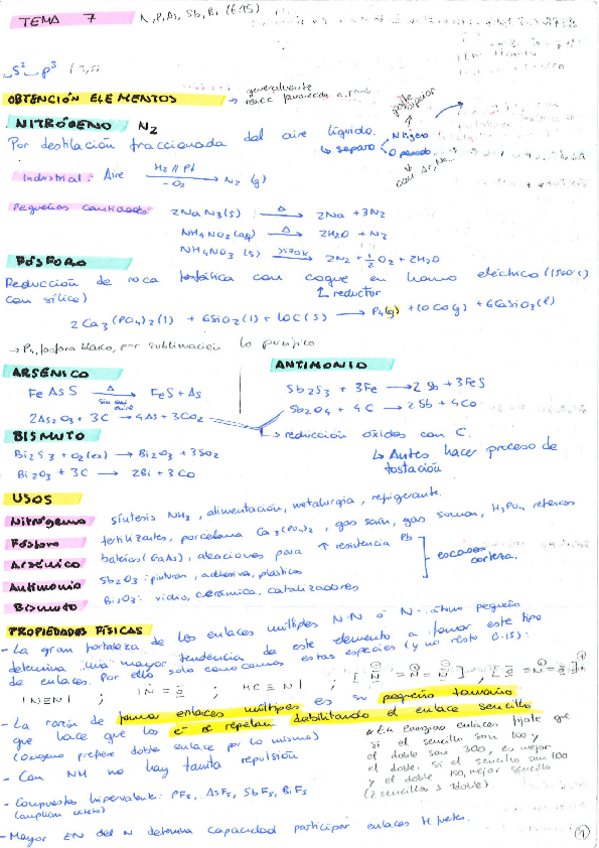 TEMA 7 N, P, As, Sb, Bi (G.15)
s² p³
OBTENCIÓN ELEMENTOS → generalmente
NITRÓGENO N₂
Por destilación fraccionada del aire líquido. ↳ separo N ligero
O pesado
parte superior
con Ar, Ne
Industrial: Aire H₂ // Pt → N₂ (g)
-O₂
Pequeñas cantidades: 2NaN₃(s) Δ→ 2Na + 3N₂
NH₄NO₂(aq) Δ→ 2H₂O + N₂
NH₄NO₃ (s) → 2N₂ + ½O₂ + 2H₂O
FÓSFORO
Reducción de roca fosfática con coque en horno eléctrico (1500°C)
con sílice) ↳ reductor
2Ca₃(PO₄)₂(l) + 6SiO₂(l) + 10C(s) → P₄(g) + 10CO(g) + 6CaSiO₃(l)
→ P₄, fósforo blanco, por sublimación lo purifico
ARSÉNICO
FeAsS Δ→ FeS + As
sin aire
2As₂O₃ + 3C → 4As + 3CO₂
ANTIMONIO
Sb₂S₃ + 3Fe → 2Sb + 3FeS
Sb₂O₄ + 4C → 2Sb + 4CO
↳ reducción óxidos con C.
↳ Antes hacer proceso de
tostación
BISMUTO
Bi₂S₃ + O₂(ex) → Bi₂O₃ + 3SO₂
Bi₂O₃ + 3C → 2Bi + 3CO
USOS
Nitrógeno síntesis NH₃, alimentación, metalurgia, refrigerante.
Fósforo fertilizantes, porcelana Ca₃(PO₄)₂, gas sarín, gas somán, H₃PO₄ refrescos
Arsénico baterías (GaAs), aleaciones para ↑ resistencia Pb
Antimonio Sb₂O₃: pinturas, adhesivos, plásticos
Bismuto Bi₂O₃: vidrio, cerámica, catalizadores
escasos corteza.
PROPIEDADES FÍSICAS
- La gran fortaleza de los enlaces múltiples N-N ó N- átomo pequeño
determina una mayor tendencia de este elemento a formar este tipo
de enlaces. Por ello solo conocemos estas especies (y no resto G.15):
|N≡N| ; ; HC≡N| ;
- La razón de formar enlaces múltiples es su pequeño tamaño
que hace que los e⁻ se repelan debilitando el enlace sencillo
(oxígeno prefiere doble enlace por lo mismo)
- Con NH no hay tanta repulsión
* En energías enlaces fíjate que
si el sencillo son 100 y
el doble son 300, es mejor
el doble. Si el sencillo son 100
y el doble 150, mejor sencillo
(2 sencillos > 1 doble)
- Compuestos hipervalente: PF₅, AsF₅, SbF₅, BiF₅
(amplían octeto)
- Mayor EN del N determina capacidad participar enlaces H puentes.
1